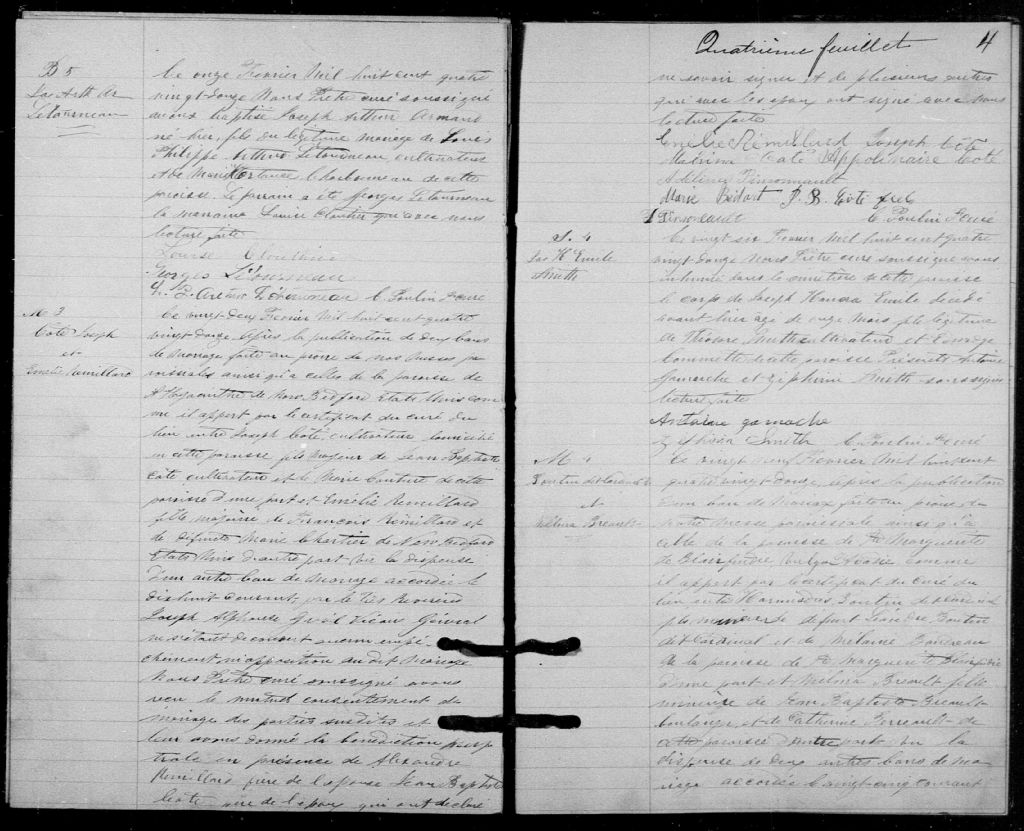 B 5
Jos Arth Ar
Letourneau
Ce onze Fevrier mil huit cent quatre
vingt douze Nous Prêtre curé soussigné
avons baptisé Joseph Arthur Armand
né hier, fils du légitime mariage de Louis
Philippe Arthur Letourneau, cultivateur
et de Marie Hortence Charbonneau de cette
paroisse. Le parrain a été Georges Letourneau
la marraine Louise Cloutier qui avec nous
lecture faite
Louise Cloutier
Georges Létourneau
L. P. Arthur Létourneau C. Poulin Ptre curé
M 3
Coté Joseph
et
Emélie Remillard
Ce vingt deux Fevrier mil huit cent quatre
vingt douze Après la publication de deux bans
de mariage faite au prone de nos messes pa
roissiales ainsi qu'a celles de la paroisse de
St Hyacinthe de New Bedford Etats Unis com
me il appert par le certificat du curé du
lieu entre Joseph Coté, cultivateur domicilié
en cette paroisse fils majeur de Jean Baptiste
Coté cultivateur et de Marie Couture de cette
paroisse d'une part et Emélie Remillard
fille majeure de François Remillard et
de défunte Marie Chartier de New Bedford
Etats Unis d'autre part Vu la dispense
d'un autre ban de mariage accordée le
dixhuit courant, par le Très Révérend
Joseph Alphonse Vicaire Général
ne s'étant decouvert aucun empê
chement ni opposition au dit mariage
Nous Prêtre curé soussigné avons
reçu le mutuel consentement de
mariage des parties susdites et
leur avons donné la bénédiction nup
tiale en présence de Alexandre
Remillard frère de l'épouse Jean Baptiste
Coté père de l'époux qui ont declaré
Quatrième feuillet 4
ne savoir signer et de plusieurs autres
qui avec les époux ont signé avec nous
lecture faite
Emélie Rémillard Joseph Côté
Melvina Coté Appolinaire Coté
Adelina Pinsonnault
Marie Bédart J. B. Coté
Pinsonault C. Poulin Ptre curé
S. 4
Jos H Emile
Smith
Ce vingt six Fevrier mil huit cent quatre
vingt douze Nous Prêtre curé soussigné avons
inhumé dans le cimetière de cette paroisse
le corps de Joseph Emile décédé
avant hier agé de onze mois, fils légitime
de Smith cultivateur et
de cette paroisse Présents Antoine
Gamache et Zéphirin Smith soussignés
lecture faite
Antoine gamache
Zéphirin Smith C. Poulin Ptre curé
M 4
Pontin dit Cardinal
et
Melina Breault
Ce vingt neuf Fevrier mil huit cent
quatre vingt douze, après la publication
d'un ban de mariage faite au prone de
notre messe paroissiale ainsi qu'à
celle de la paroisse de Ste Marguerite
de Blairfindie comme
il appert par le certificat du curé du
lieu entre Hormisdas Pontin dit Cardinal
fils mineur de défunt Pontin
dit Cardinal et de Melanie
de la paroisse de Ste Marguerite Blairfindie
d'une part et Melina Breault fille
mineure de Jean Baptiste Breault
boulanger, et de Catherine Perreault de
cette paroisse d'autre part. Vu la
dispense de deux autres bans de ma
riage accordés le vingt cinq courant